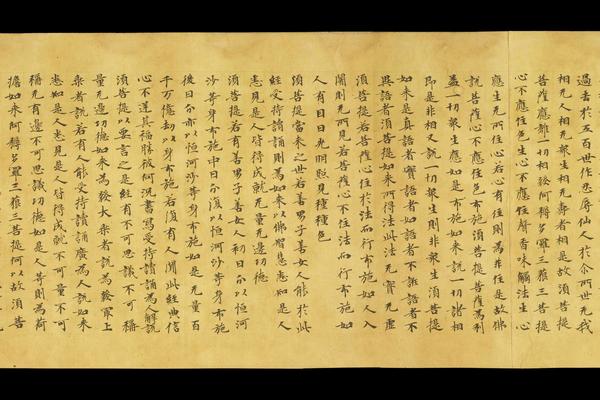 過去於五百世作忍辱仙人於尒所世无我
相无人相无衆生相无壽者相是故須菩提
菩薩應離一切相發阿耨多羅三藐三菩提
心不應住色生心不應住聲香味觸法生心
應生无所住心若心有住則為非住是故佛
說菩薩心不應住色布施須菩提菩薩為利
益一切衆生應如是布施如来說一切諸相
即是非相又說一切衆生則非衆生須菩提
如来是真語者實語者如語者不誑語者不
異語者須菩提如来所得法此法无實无虛
須菩提若菩薩心住於法而行布施如人入
闇則无所見若菩薩心不住法而行布施如
人有目日光明照見種種色
須菩提當来之世若善男子善女人能於此
經受持讀誦則為如来以佛智慧悉知是人
悉見是人皆得成就无量无邊功德
須菩提若有善男子善女人初日分以恒河
沙等身布施中日分復以恒河沙等身布施
後日分亦以恒河沙等身布施如是无量百
千万億劫以身布施若復有人聞此經典信
心不逆其福勝彼何況書寫受持讀誦為人解說
須菩提以要言之是經有不可思議不可稱
量无邊功德如来為發大乘者說為發最上
乘者說若有人能受持讀誦廣為人說如来
悉知是人悉見是人皆得成就不可量不可
稱无有邊不可思議功德如是人等則為荷
擔如来阿耨多羅三藐三菩提何以故須菩